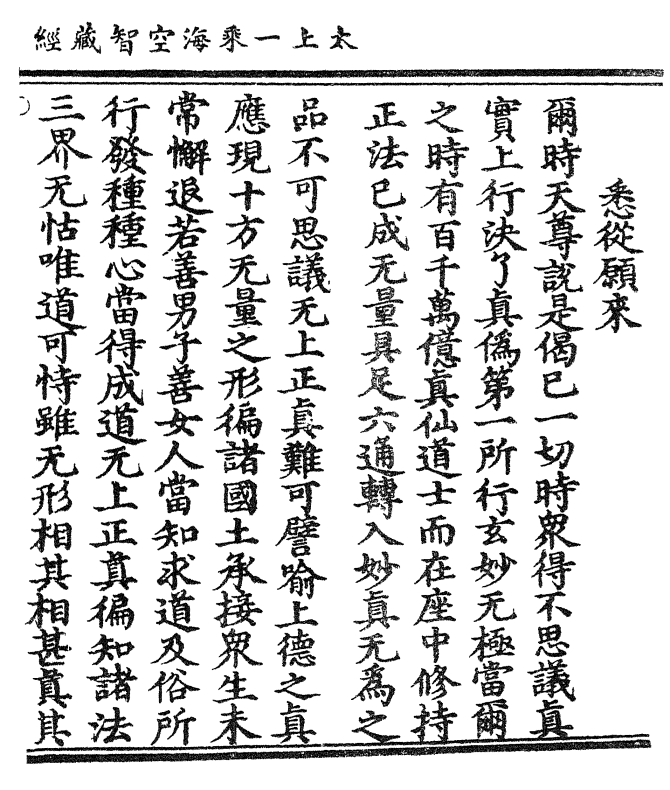 太上一乘海空智藏經
悉從願來
爾時天尊説是偈已一切時衆得不思議真
實上行決了真僞第一所行玄妙无極當爾
之時有百千萬億真仙道士而在座中修持
正法已成无量具足六通轉入妙真无爲之
品不可思議无上正真難可譬喻上德之真
應現十方无量之形徧諸國土承接衆生未
常懈退若善男子善女人當知求道及俗所
行發種種心當得成道无上正真徧知諸法
三界无怙唯道可恃雖无形相其相甚真其